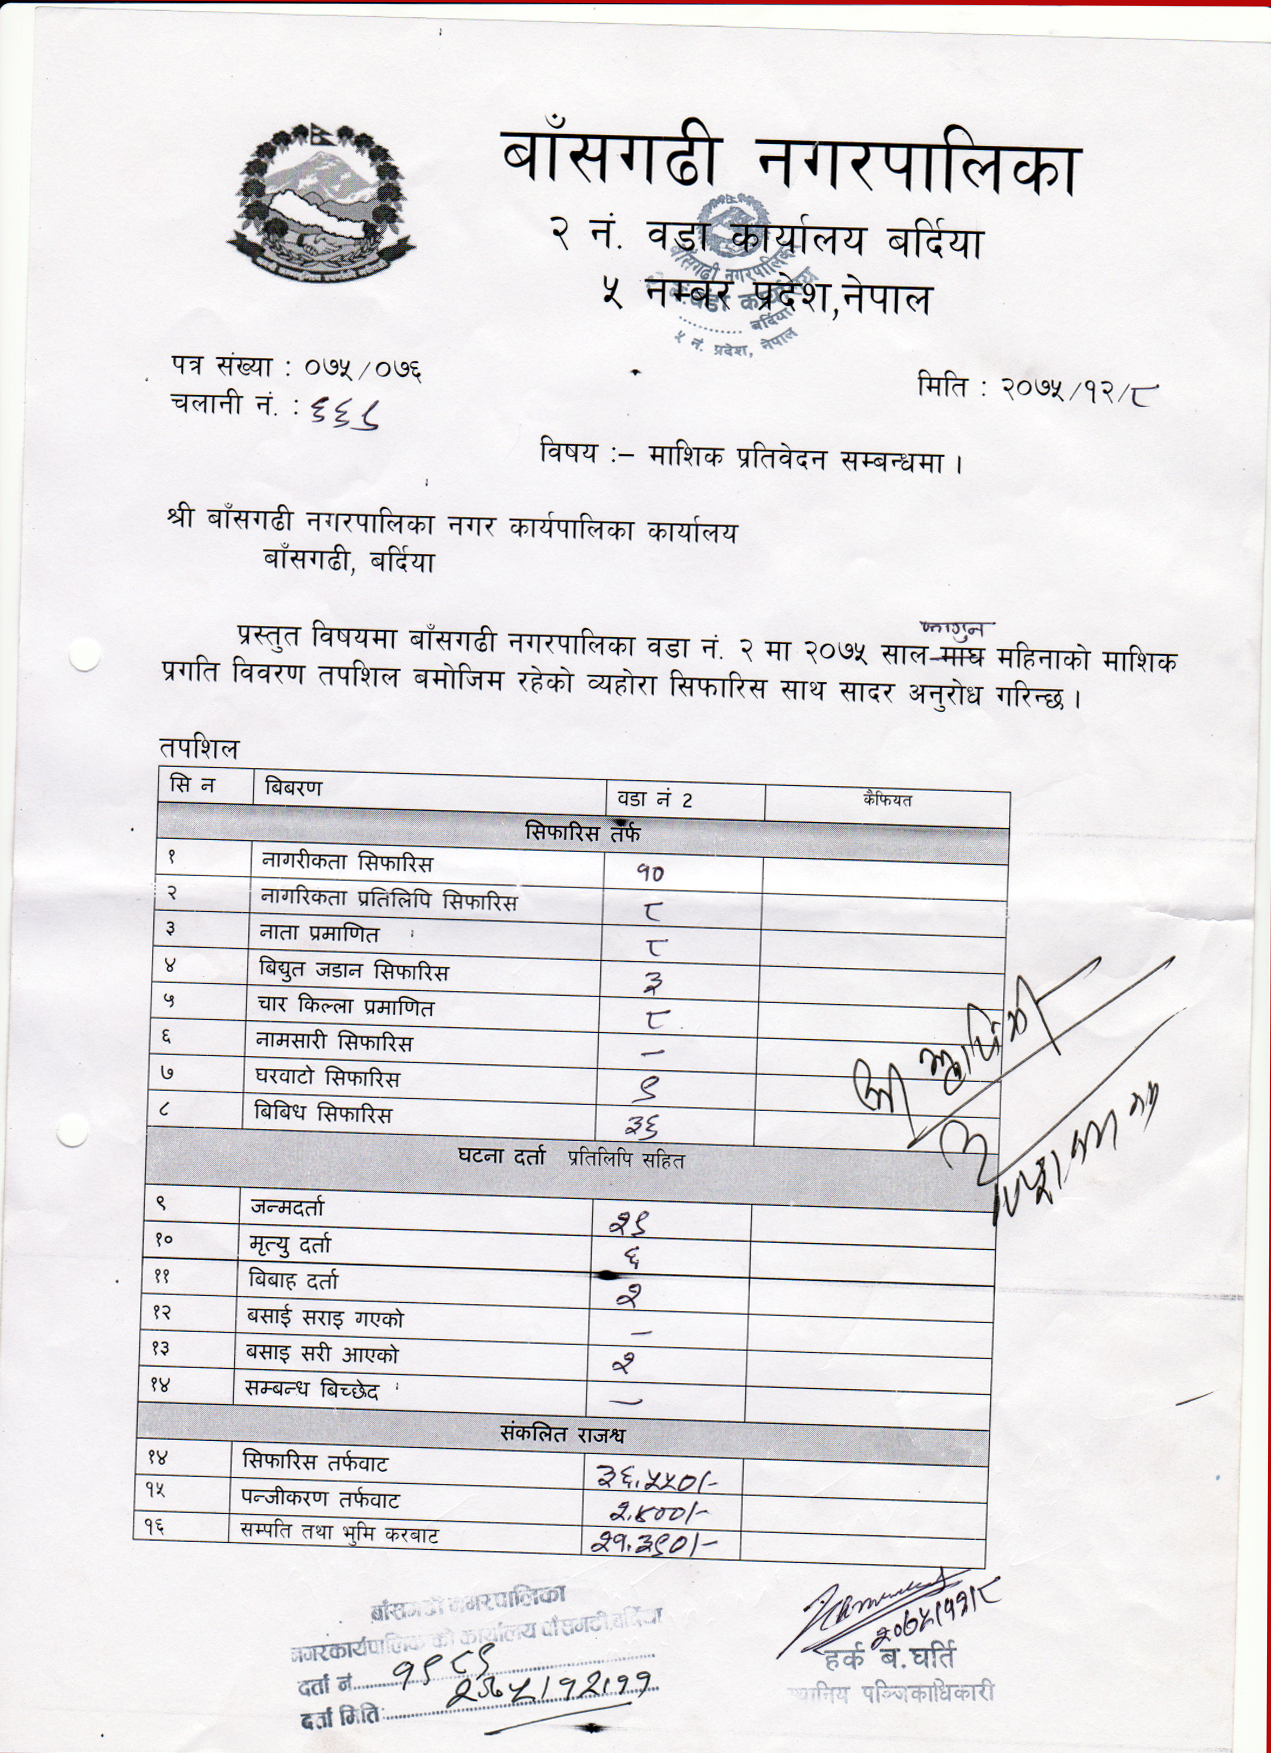 बाँसगढी नगरपालिका
२ नं. वडा कार्यालय बर्दिया
५ नम्बर प्रदेश,नेपाल
बाँसगढी नगरपालिका
वडा कार्यालय
बर्दिया
५ नं. प्रदेश, नेपाल
पत्र संख्या : ०७५/०७६
मिति : २०७५/१२/८
चलानी नं. : ६६९
विषय :– माशिक प्रतिवेदन सम्बन्धमा ।
श्री बाँसगढी नगरपालिका नगर कार्यपालिका कार्यालय
बाँसगढी, बर्दिया
फागुन
प्रस्तुत विषयमा बाँसगढी नगरपालिका वडा नं. २ मा २०७५ साल माघ महिनाको माशिक
प्रगति विवरण तपशिल बमोजिम रहेको व्यहोरा सिफारिस साथ सादर अनुरोध गरिन्छ ।
तपशिल
सि न बिबरण वडा नं 2 कैफियत
सिफारिस तर्फ
१ नागरीकता सिफारिस १०
२ नागरिकता प्रतिलिपि सिफारिस ८
३ नाता प्रमाणित ८
४ बिद्युत जडान सिफारिस ३
५ चार किल्ला प्रमाणित ८
६ नामसारी सिफारिस –
७ घरवाटो सिफारिस ९
८ बिबिध सिफारिस ३६
घटना दर्ता प्रतिलिपि सहित
९ जन्मदर्ता २९
१० मृत्यु दर्ता ६
११ बिबाह दर्ता २
१२ बसाई सराइ गएको –
१३ बसाइ सरी आएको २
१४ सम्बन्ध बिच्छेद –
संकलित राजश्व
१४ सिफारिस तर्फवाट ३६,५५०/-
१५ पन्जीकरण तर्फवाट २,४००/-
१६ सम्पति तथा भुमि करबाट २१,३९०/-
बाँसगढी नगरपालिका
नगरकार्यपालिका को कार्यालय बाँसगढी,बर्दिया
दर्ता नं. १९८९
दर्ता मिति: २०७५/१२/११
२०७५/१२/८
हर्क ब.घर्ति
स्थानिय पञ्जिकाधिकारी